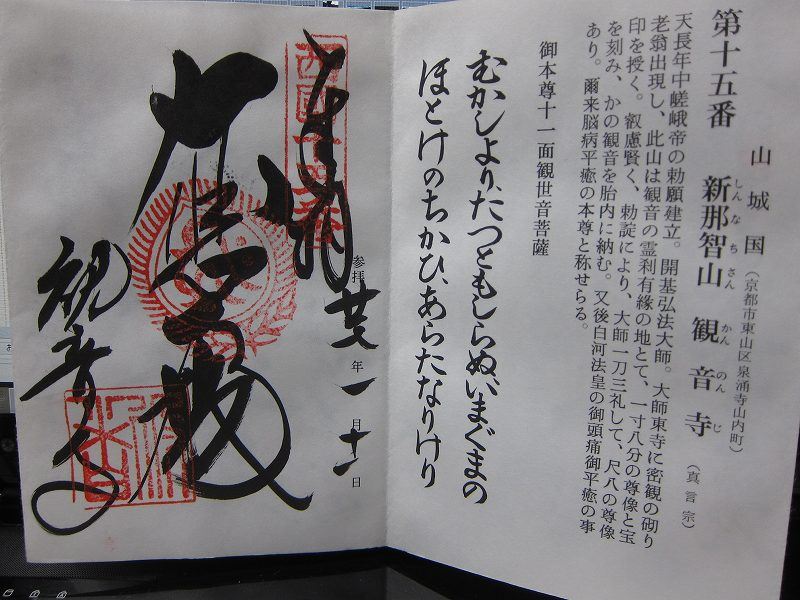 第十五番
山城国（京都市東山区泉涌寺山内町）
新那智山 観音寺（真言宗）
しんなちさん かんのんじ
天長年中嵯峨帝の勅願建立。開基弘法大師。大師東寺に密観の砌り
老翁出現し、此山は観音の霊利有縁の地とて、一寸八分の尊像と宝
印を授く。叡慮賢く、勅諚により、大師一刀三礼して、尺八の尊像
を刻み、かの観音を胎内に納む。又後白河法皇の御頭痛御平癒の事
あり。爾来脳病平癒の本尊と称せらる。
御本尊十一面観世音菩薩
むかしより、たつともしらぬ、いまぐまの
ほとけのちかひ、あらたなりけり
奉拝
参拝 廿八年一月十一日
大悲殿
観音寺